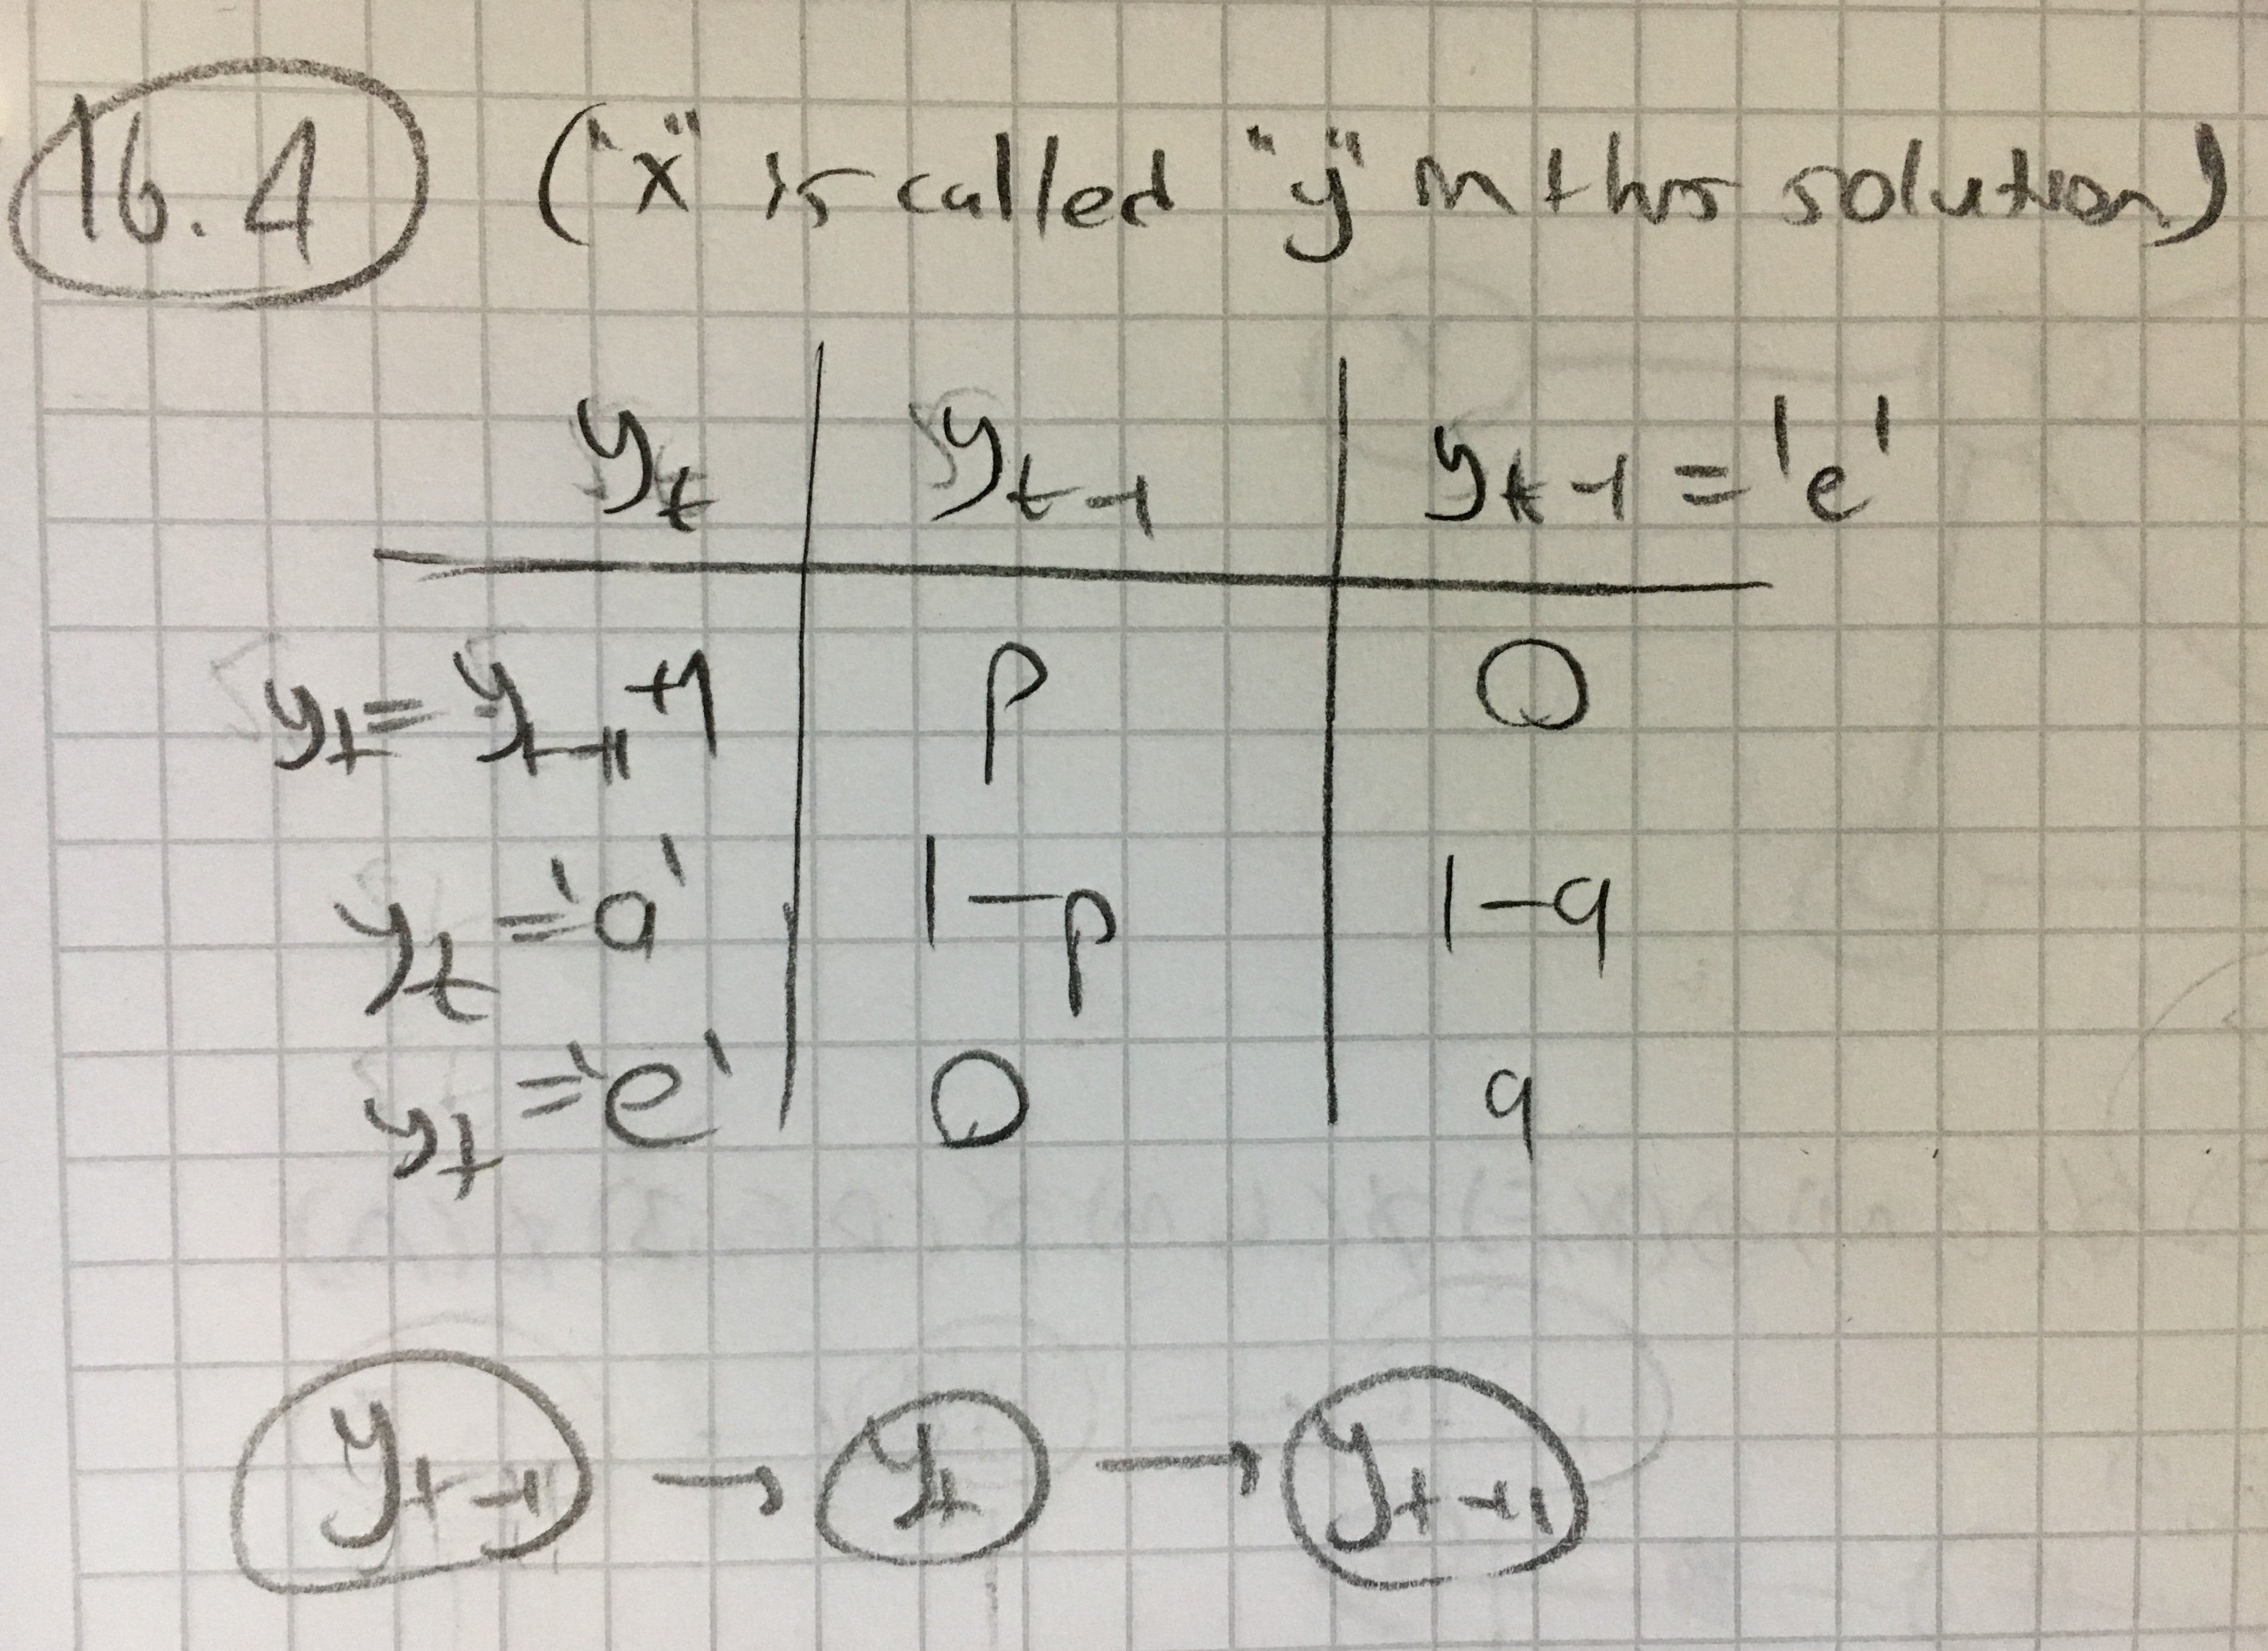 16.4 ("x" is called "y" in this solution)
y_t | y_{t-1} | y_{t-1} = 'e'
y_t = y_{t-1} + 1 | p | 0
y_t = 'a' | 1-p | 1-q
y_t = 'e' | 0 | q
y_{t-1} → y_t → y_{t+1}